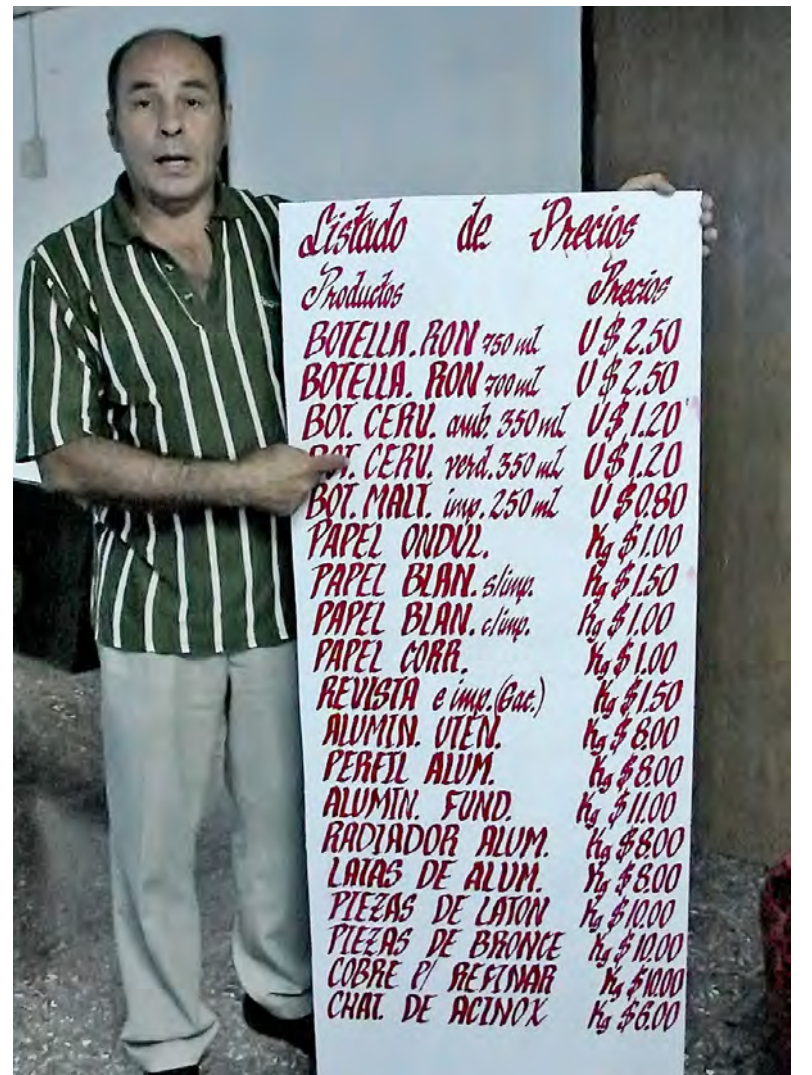 Listado de Precios
Productos Precios
BOTELLA. RON 750 ml U $2.50
BOTELLA. RON 700 ml U $2.50
BOT. CERV. amb. 350 ml U $1.20
BOT. CERV. verd. 350 ml U $1.20
BOT. MALT. imp. 250 ml U $0.80
PAPEL ONDUL. Kg $1.00
PAPEL BLAN. s/imp. Kg $1.50
PAPEL BLAN. c/imp. Kg $1.00
PAPEL CORR. Kg $1.00
REVISTA e imp. (Gac.) Kg $1.50
ALUMIN. UTEN. Kg $8.00
PERFIL ALUM. Kg $8.00
ALUMIN. FUND. Kg $11.00
RADIADOR ALUM. Kg $8.00
LATAS DE ALUM. Kg $8.00
PIEZAS DE LATON Kg $10.00
PIEZAS DE BRONCE Kg $10.00
COBRE P/ REFINAR Kg $10.00
CHAT. DE ACINOX Kg $6.00